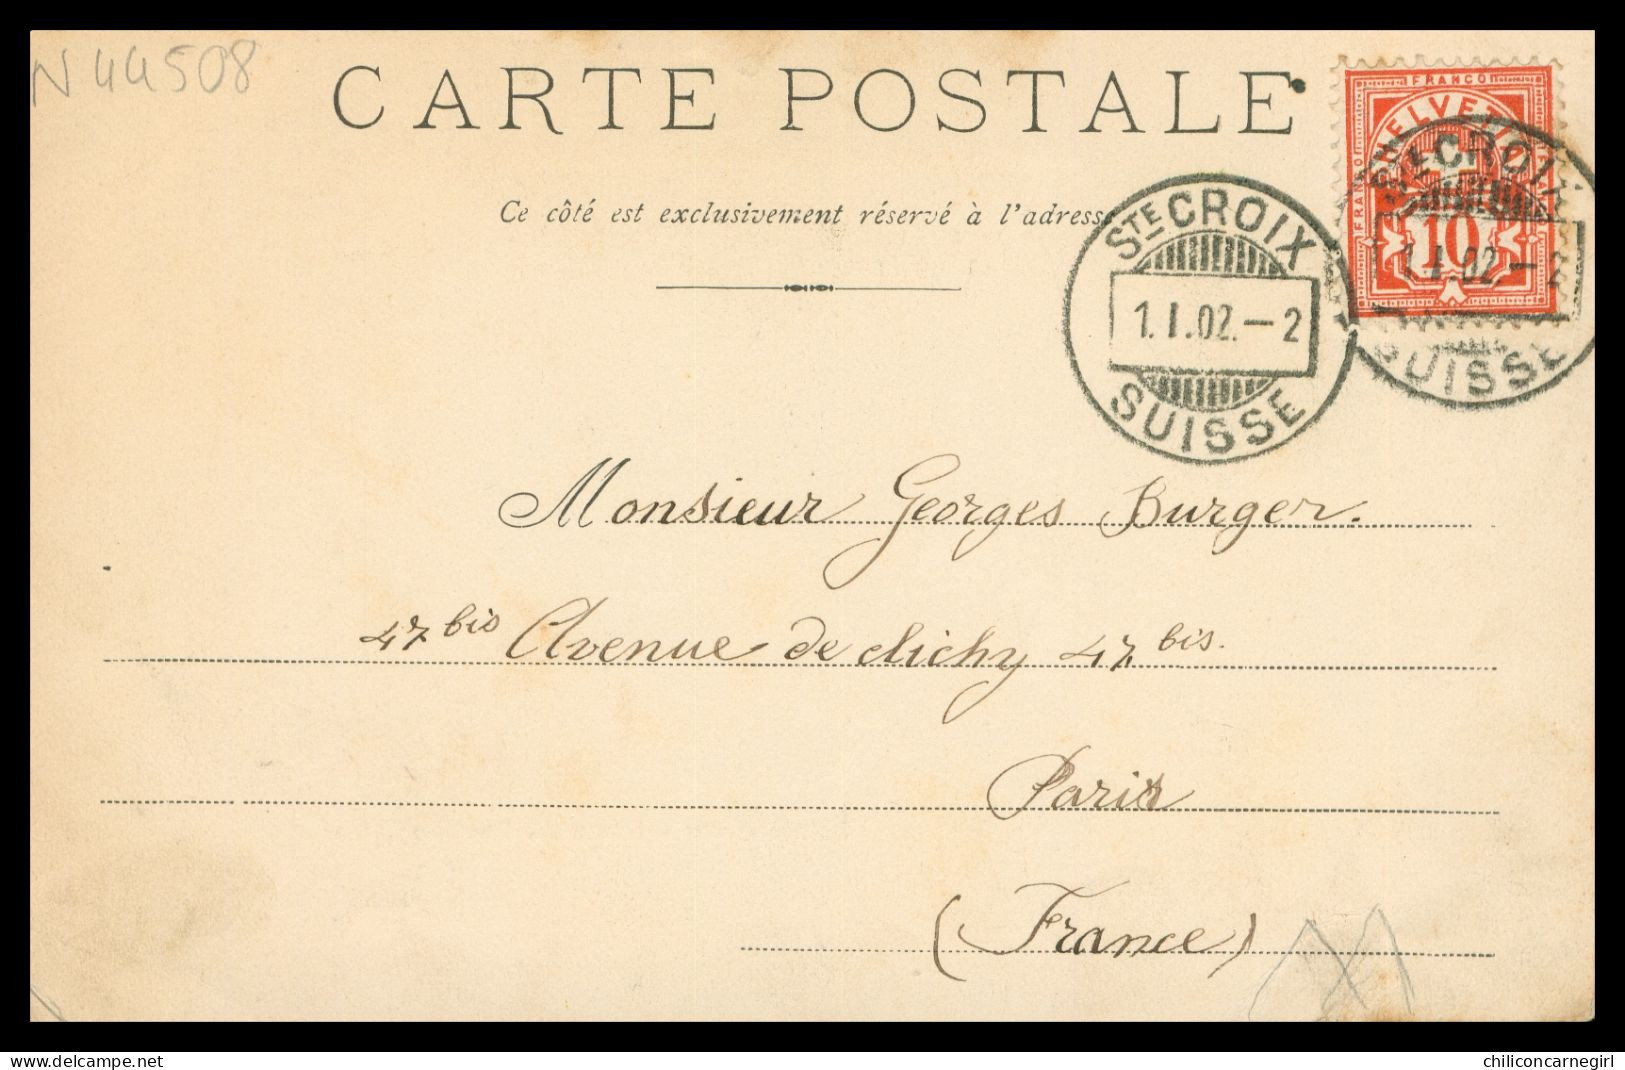 N 44508
CARTE POSTALE
Ce côté est exclusivement réservé à l'adresse
FRANCO
HELVETIA
FRANCO
10
STE CROIX
1.I.02.-2
SUISSE
STE CROIX
1.I.02.-2
SUISSE
Monsieur Georges Burger.
47 bis Avenue de Clichy 47 bis.
Paris
(France)
www.delcampe.net
chiliconcarnegirl